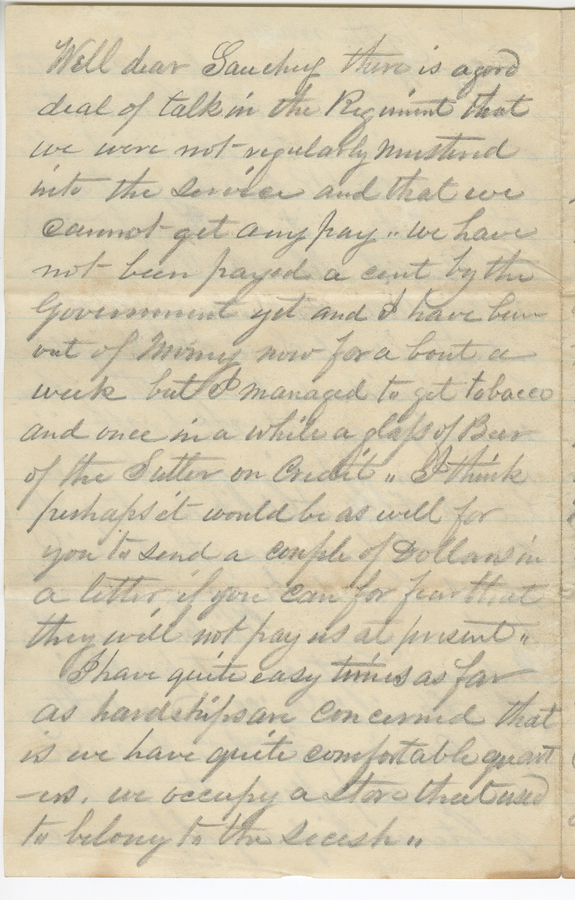 Well dear Sanchey there is a good
deal of talk in the Regiment that
we were not regularly mustered
into the service and that we
cannot get any pay " we have
not been payed a cent by the
Government yet and I have been
out of Money now for a bout a
week but I managed to get tobacco
and once in a while a glass of Beer
of the Sutler on Credit " I think
perhaps it would be as well for
you to send a couple of Dollars in
a letter if you can for fear that
they will not pay us at present "
I have quite easy times as far
as hardships are concerned that
is we have quite comfortable quart
-ers. we occupy a store that used
to belong to the secesh "